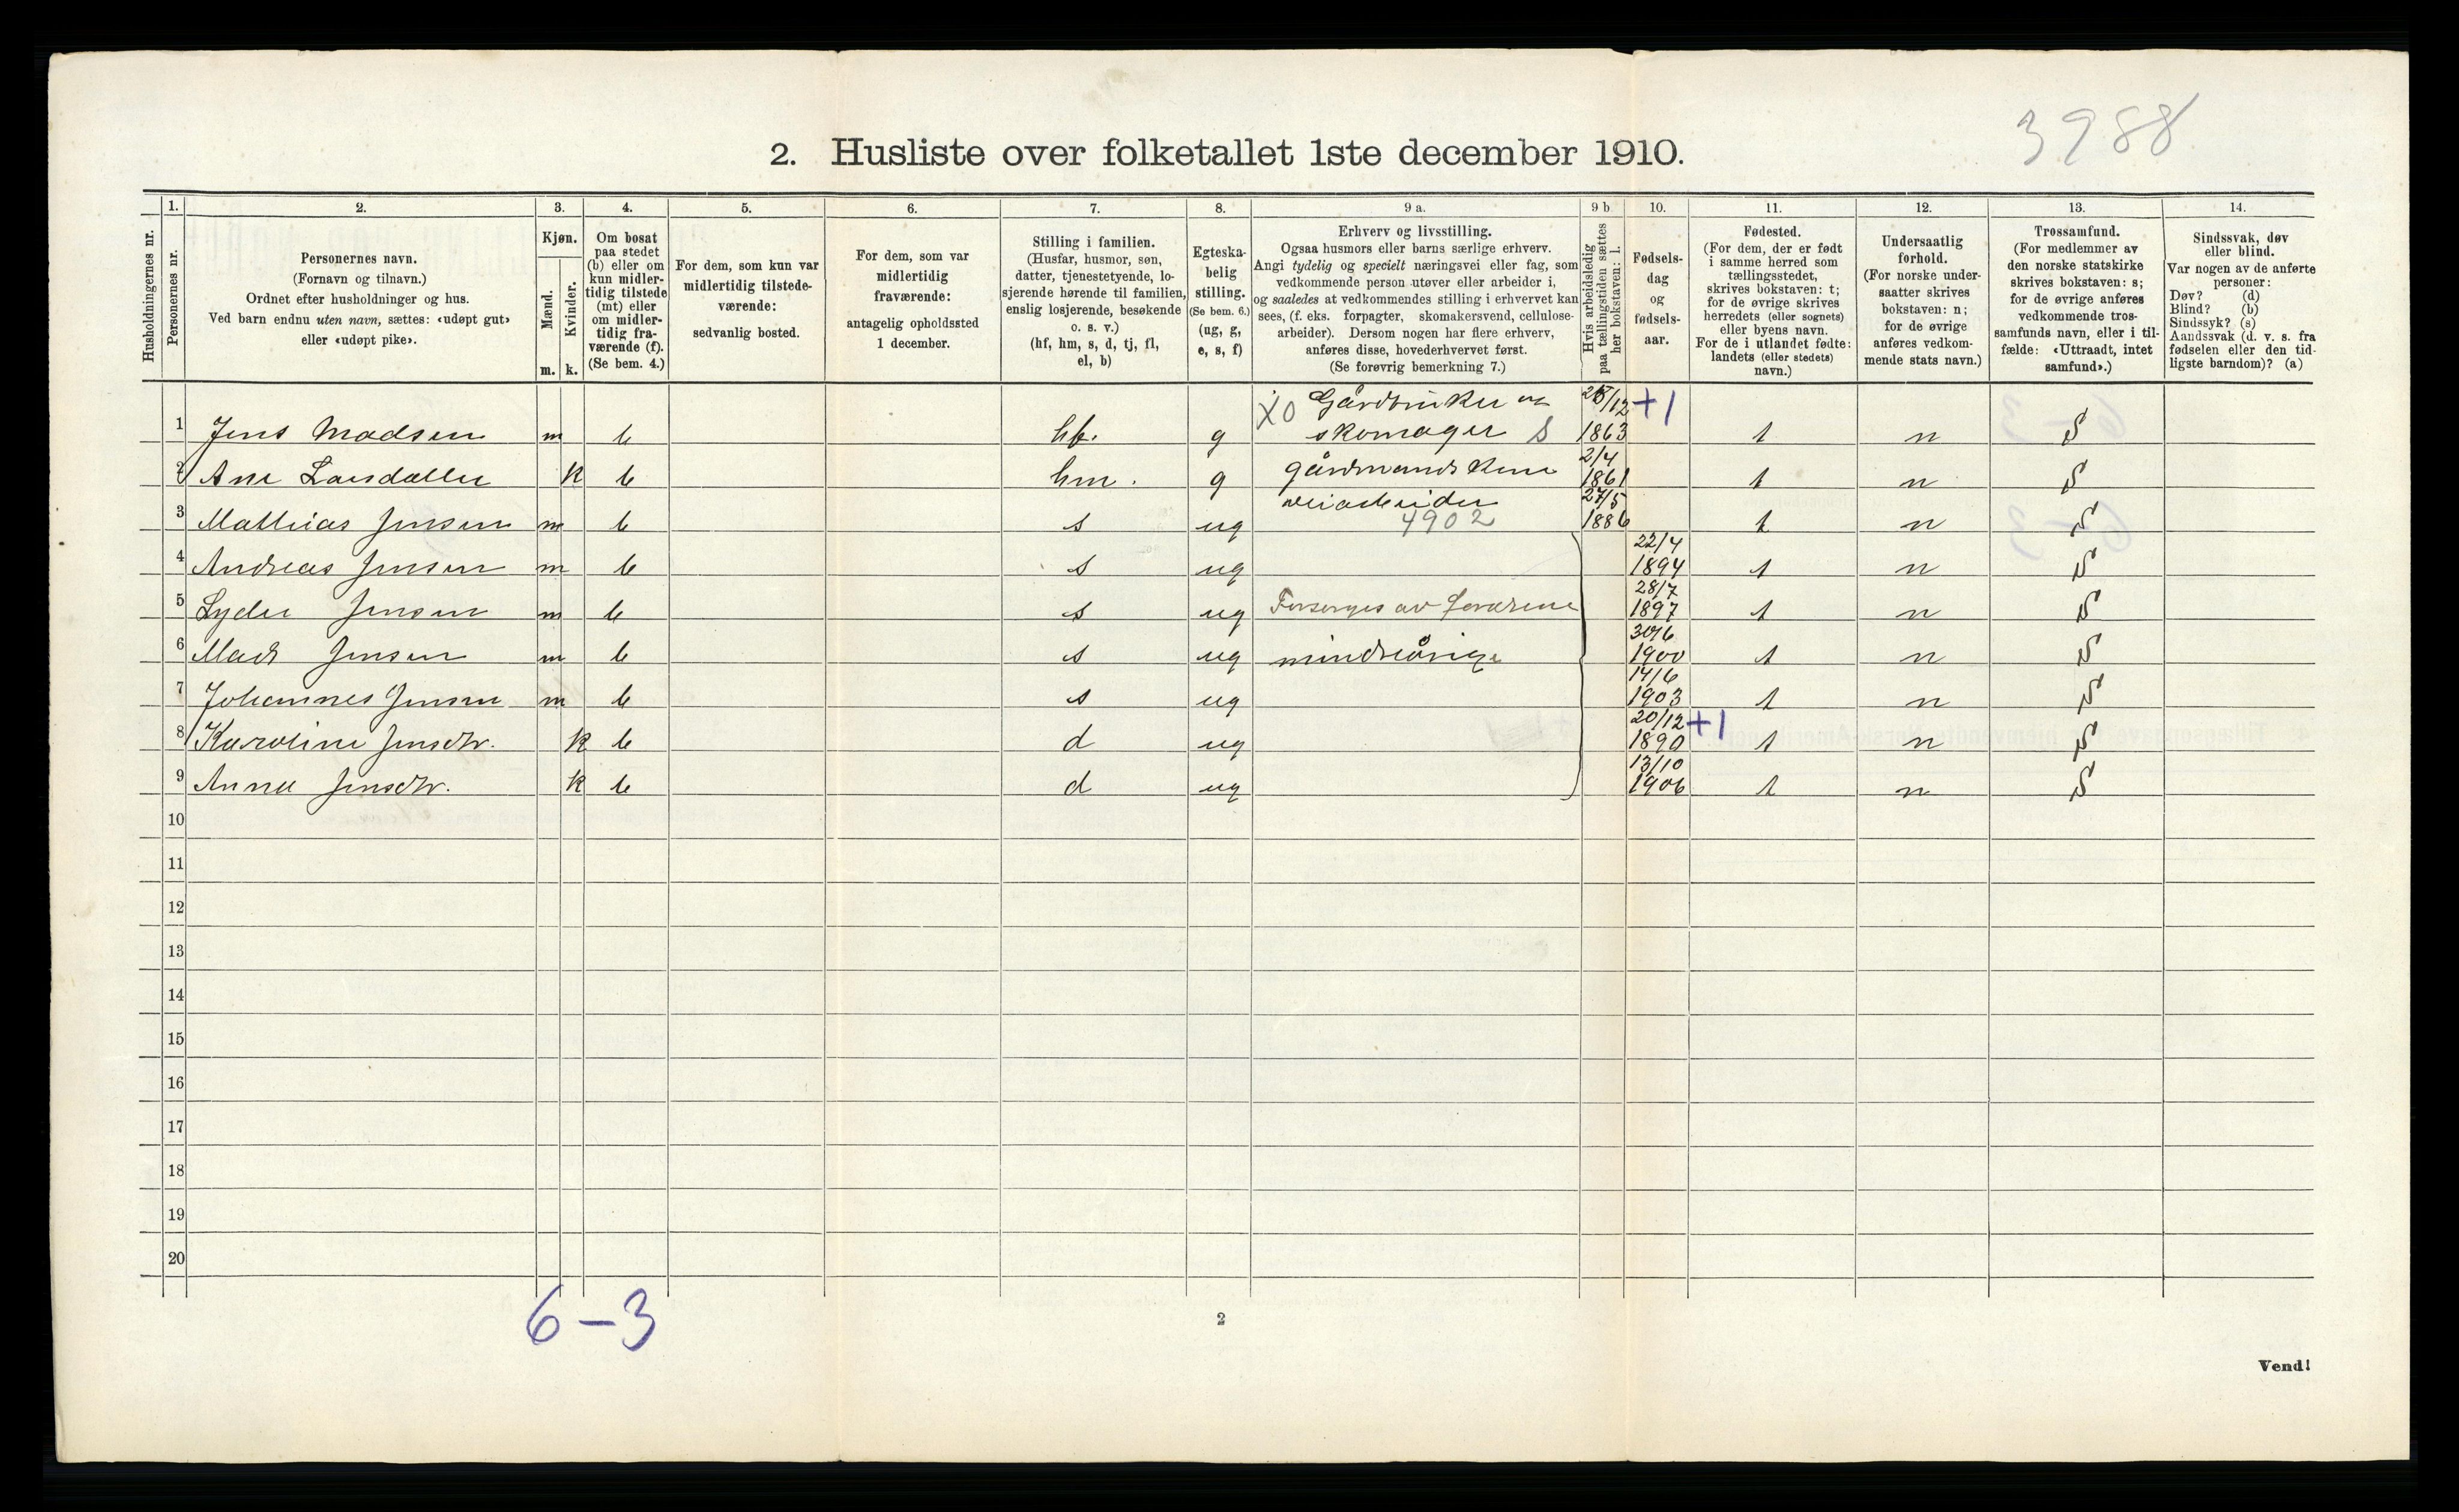 3988
2. Husliste over folketallet 1ste december 1910.
1. 2. 3. 4. 5. 6. 7. 8. 9 a. 9 b. 10. 11. 12. 13. 14.
Husholdningernes nr.
Personernes nr.
Personernes navn.
(Fornavn og tilnavn.)
Ordnet efter husholdninger og hus.
Ved barn endnu uten navn, sættes: «udøpt gut»
eller «udøpt pike».
Kjøn.
Mænd.
Kvinder.
m. k.
Om bosat
paa stedet
(b) eller om
kun midler-
tidig tilstede
(mt) eller
om midler-
tidig fra-
værende (f).
(Se bem. 4.)
For dem, som kun var
midlertidig tilstede-
værende:
sedvanlig bosted.
For dem, som var
midlertidig
fraværende:
antagelig opholdssted
1 december.
Stilling i familien.
(Husfar, husmor, søn,
datter, tjenestetyende, lo-
sjerende hørende til familien,
enslig losjerende, besøkende
o. s. v.)
(hf, hm, s, d, tj, fl,
el, b)
Egteska-
belig
stilling.
(Se bem. 6.)
(ug, g,
e, s, f)
Erhverv og livsstilling.
Ogsaa husmors eller barns særlige erhverv.
Angi tydelig og specielt næringsvei eller fag, som
vedkommende person utøver eller arbeider i,
og saaledes at vedkommendes stilling i erhvervet kan
sees, (f. eks. forpagter, skomakersvend, cellulose-
arbeider). Dersom nogen har flere erhverv,
anføres disse, hovederhvervet først.
(Se forøvrig bemerkning 7.)
Hvis arbeidsledig
paa tællingstiden sættes
her bokstaven: l.
Fødsels-
dag
og
fødsels-
aar.
Fødested.
(For dem, der er født
i samme herred som
tællingsstedet,
skrives bokstaven: t;
for de øvrige skrives
herredets (eller sognets)
eller byens navn.
For de i utlandet fødte:
landets (eller stedets)
navn.)
Undersaatlig
forhold.
(For norske under-
saatter skrives
bokstaven: n;
for de øvrige
anføres vedkom-
mende stats navn.)
Trossamfund.
(For medlemmer av
den norske statskirke
skrives bokstaven: s;
for de øvrige anføres
vedkommende tros-
samfunds navn, eller i til-
fælde: «Uttraadt, intet
samfund».)
Sindssvak, døv
eller blind.
Var nogen av de anførte
personer:
Døv? (d)
Blind? (b)
Sindssyk? (s)
Aandssvak (d. v. s. fra
fødselen eller den tid-
ligste barndom)? (a)
X0 Gårdbruker og +1
1 Jens Madsen m b hf. g skomager S 1863 t n S
2/4
2 Ane Larsdatter k b hm. g gårdmandskone 1861 t n S
veiarbeider 27/5
3 Mathias Jensen m b s ug 4902 1886 t n S
22/4
4 Andreas Jensen m b s ug 1894 t n S
28/7
5 Lyder Jensen m b s ug Forsørges av forældrene 1897 t n S
30/6
6 Mads Jensen m b s ug mindreårige 1900 t n S
14/6
7 Johannes Jensen m b s ug 1903 t n S
20/12 +1
8 Karoline Jensdtr. k b d ug 1890 t n S
13/10
9 Anna Jensdtr. k b d ug 1906 t n S
10
11
12
13
14
15
16
17
18
19
20
6-3
2
Vend!